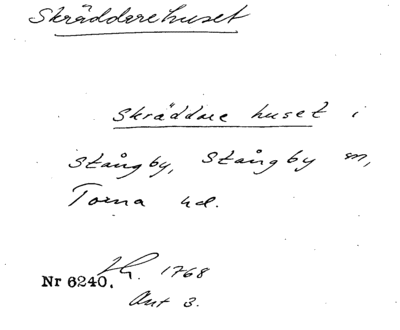 Skräddarehuset
Skräddare huset i
Stångby, Stångby m,
Torna hd.
Nr 6240. 1768
Akt 3.